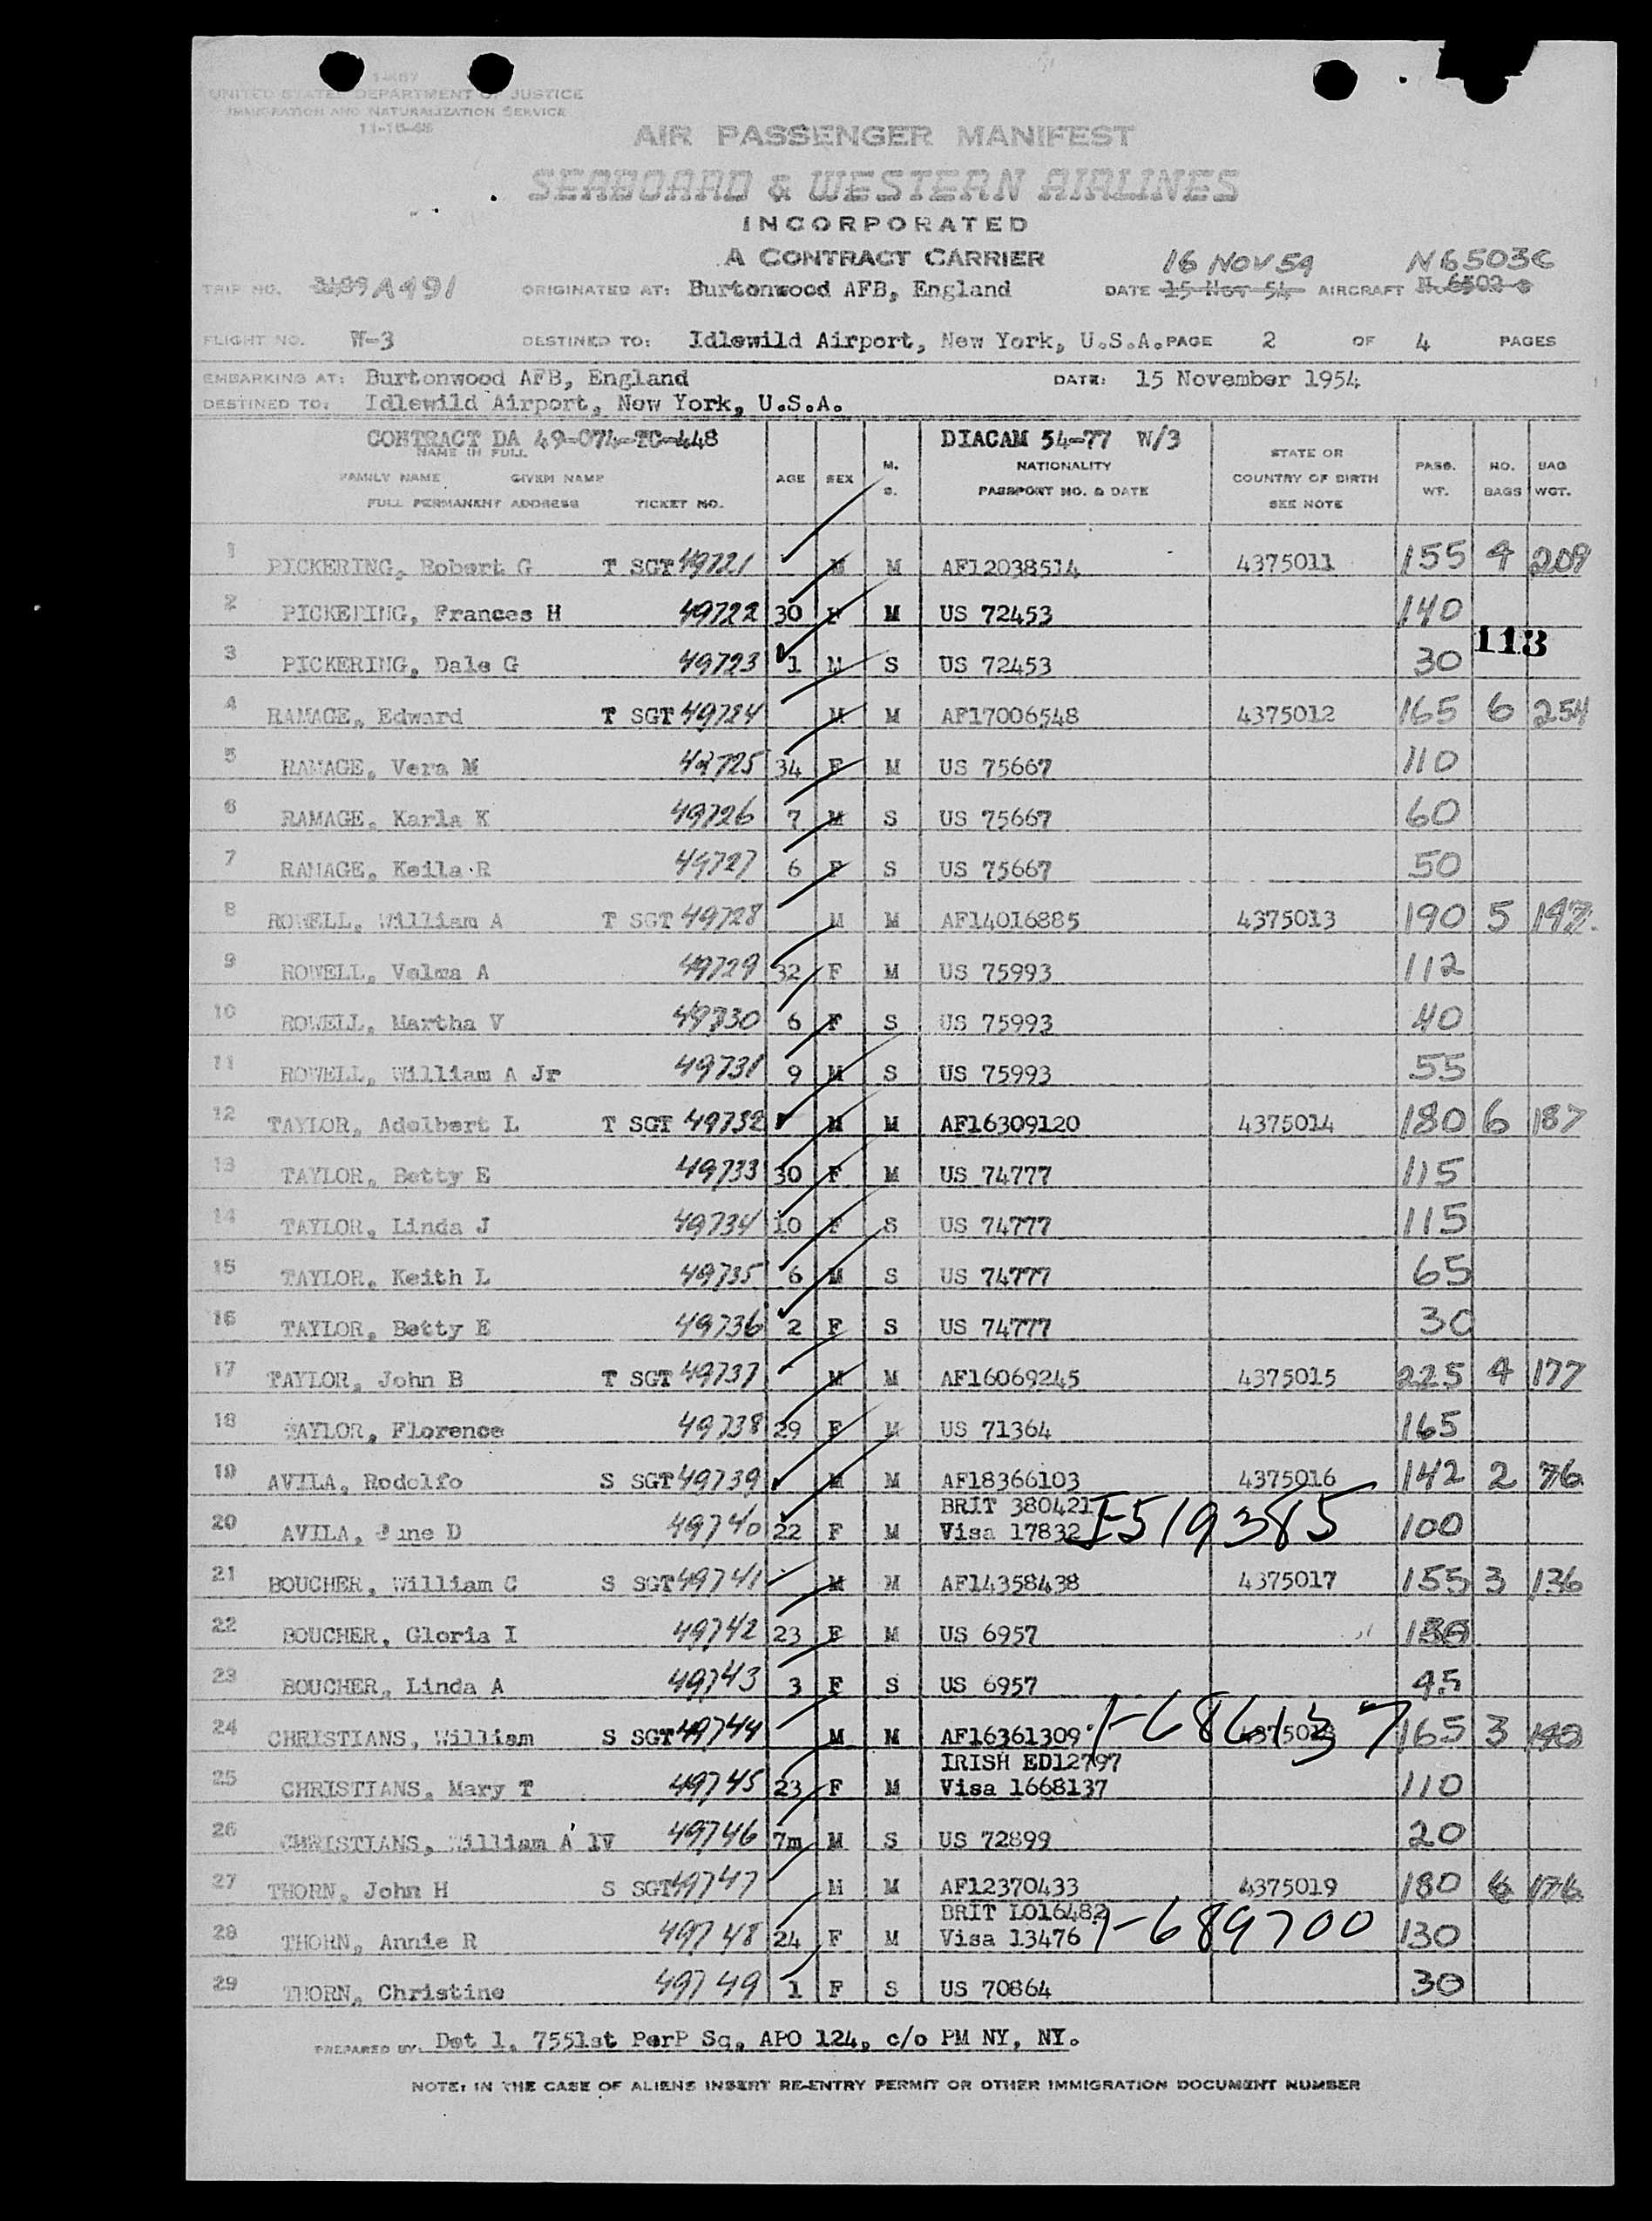 I-467
UNITED STATES DEPARTMENT OF JUSTICE
IMMIGRATION AND NATURALIZATION SERVICE
11-15-48
AIR PASSENGER MANIFEST
SEABOARD & WESTERN AIRLINES
INCORPORATED
A CONTRACT CARRIER
16 NOV 54 N6503C
TRIP NO. A491 ORIGINATED AT: Burtonwood AFB, England DATE 15 Nov 54 AIRCRAFT N 6502 C
FLIGHT NO. W-3 DESTINED TO: Idlewild Airport, New York, U.S.A. PAGE 2 OF 4 PAGES
EMBARKING AT: Burtonwood AFB, England DATE: 15 November 1954
DESTINED TO: Idlewild Airport, New York, U.S.A.
CONTRACT DA 49-074-TC-448 DIACAM 54-77 W/3
NAME IN FULL
FAMILY NAME GIVEN NAME AGE SEX M. S. NATIONALITY STATE OR COUNTRY OF BIRTH PASS. WT. NO. BAGS BAG WGT.
FULL PERMANENT ADDRESS TICKET NO. PASSPORT NO. & DATE SEE NOTE
1 PICKERING, Robert G T SGT 49721 M M AF12038514 4375011 155 4 209
2 PICKERING, Frances H 49722 30 F M US 72453 140
113
3 PICKERING, Dale G 49723 1 M S US 72453 30
4 RAMAGE, Edward T SGT 49724 M M AF17006548 4375012 165 6 254
5 RAMAGE, Vera M 49725 34 F M US 75667 110
6 RAMAGE, Karla K 49726 7 M S US 75667 60
7 RAMAGE, Keila R 49727 6 F S US 75667 50
8 ROWELL, William A T SGT 49728 M M AF14016885 4375013 190 5 197
9 ROWELL, Velma A 49729 32 F M US 75993 112
10 ROWELL, Martha V 49730 6 F S US 75993 40
11 ROWELL, William A Jr 49731 9 M S US 75993 55
12 TAYLOR, Adelbert L T SGT 49732 M M AF16309120 4375014 180 6 187
13 TAYLOR, Betty E 49733 30 F M US 74777 115
14 TAYLOR, Linda J 49734 10 F S US 74777 115
15 TAYLOR, Keith L 49735 6 M S US 74777 65
16 TAYLOR, Betty E 49736 2 F S US 74777 30
17 TAYLOR, John B T SGT 49737 M M AF16069245 4375015 225 4 177
18 TAYLOR, Florence 49738 29 F M US 71364 165
19 AVILA, Rodolfo S SGT 49739 M M AF18366103 4375016 142 2 76
BRIT 380421
20 AVILA, June D 49740 22 F M Visa 17832 I-519385 100
21 BOUCHER, William C S SGT 49741 M M AF14358438 4375017 155 3 136
22 BOUCHER, Gloria I 49742 23 F M US 6957
23 BOUCHER, Linda A 49743 3 F S US 6957 45
24 CHRISTIANS, William S SGT 49744 M M AF16361309 I-686137 4375018 165 3
IRISH ED12797
25 CHRISTIANS, Mary T 49745 23 F M Visa 1668137 110
26 CHRISTIANS, William A IV 49746 7m M S US 72899 20
27 THORN, John H S SGT 49747 M M AF12370433 4375019 180 176
BRIT LO16482
28 THORN, Annie R 49748 24 F M Visa 13476 I-689700 130
29 THORN, Christine 49749 1 F S US 70864 30
PREPARED BY: Det 1, 7551st PerP Sq, APO 124, c/o PM NY, NY.
NOTE: IN THE CASE OF ALIENS INSERT RE-ENTRY PERMIT OR OTHER IMMIGRATION DOCUMENT NUMBER